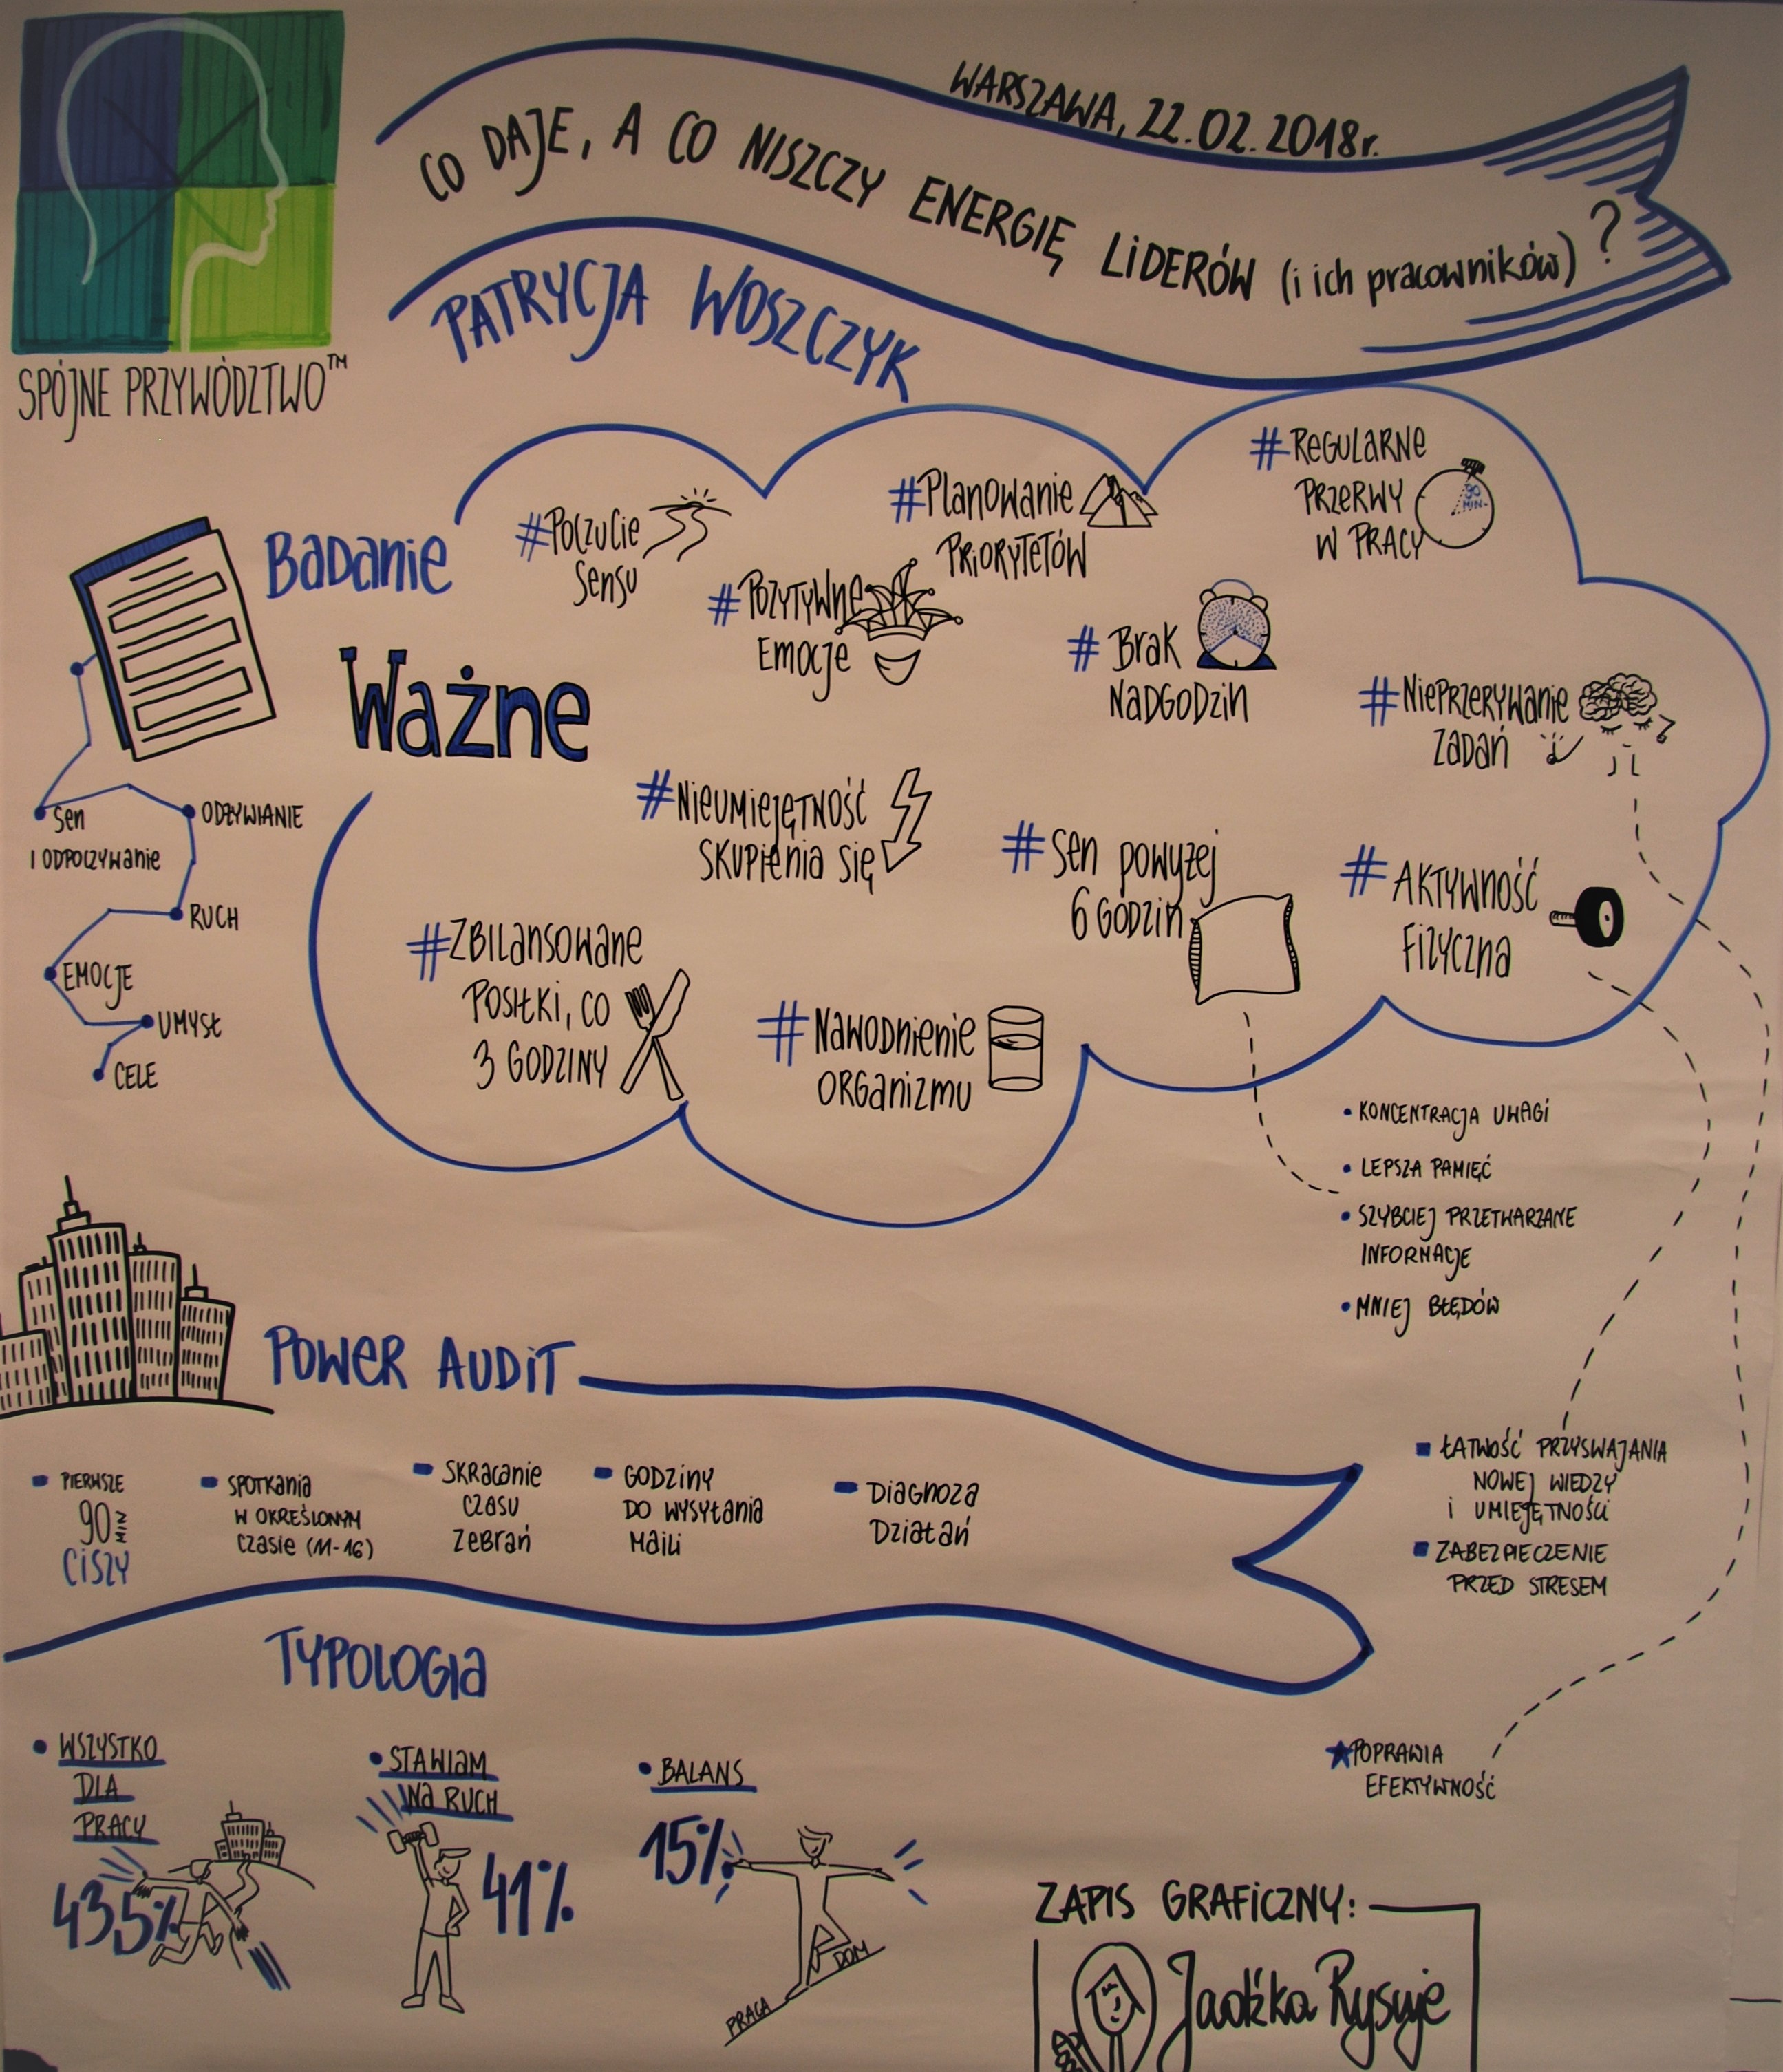 WARSZAWA, 22.02.2018r.
CO DAJE, A CO NISZCZY ENERGIĘ LIDERÓW (i ich pracowników)?
PATRYCJA WOSZCZYK
SPÓJNE PRZYWÓDZTWO™
Badanie
Sen
i odpoczywanie
ODŻYWIANIE
RUCH
EMOCJE
UMYSŁ
CELE
Ważne
#Poczucie
Sensu
#Planowanie
Priorytetów
#Regularne
Przerwy
w pracy
90
MIN.
#Pozytywne
Emocje
#Brak
Nadgodzin
#Nieprzerywanie
Zadań
#Nieumiejętność
Skupienia się
#Sen powyżej
6 godzin
#Aktywność
Fizyczna
#Zbilansowane
Posiłki, co
3 godziny
#Nawodnienie
Organizmu
• KONCENTRACJA UWAGI
• LEPSZA PAMIĘĆ
• SZYBCIEJ PRZETWARZANE
INFORMACJE
• MNIEJ BŁĘDÓW
POWER AUDIT
PIERWSZE
90 MIN
CISZY
SPOTKANIA
W OKREŚLONYM
CZASIE (11-16)
SKRACANIE
CZASU
ZEBRAŃ
GODZINY
DO WYSYŁANIA
MAILI
DIAGNOZA
DZIAŁAŃ
ŁATWOŚĆ PRZYSWAJANIA
NOWEJ WIEDZY
i UMIEJĘTNOŚCI
ZABEZPIECZENIE
PRZED STRESEM
★POPRAWIA
EFEKTYWNOŚĆ
TYPOLOGIA
• WSZYSTKO
DLA
PRACY
43,5%
• STAWIAM
NA RUCH
41%
• BALANS
15%
DOM
PRACA
ZAPIS GRAFICZNY:
Jadźka Rysuje